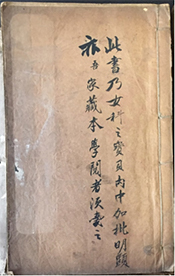 此書乃女科之寶貝內中加批明顯
亦吾家藏本學閱者須貴之